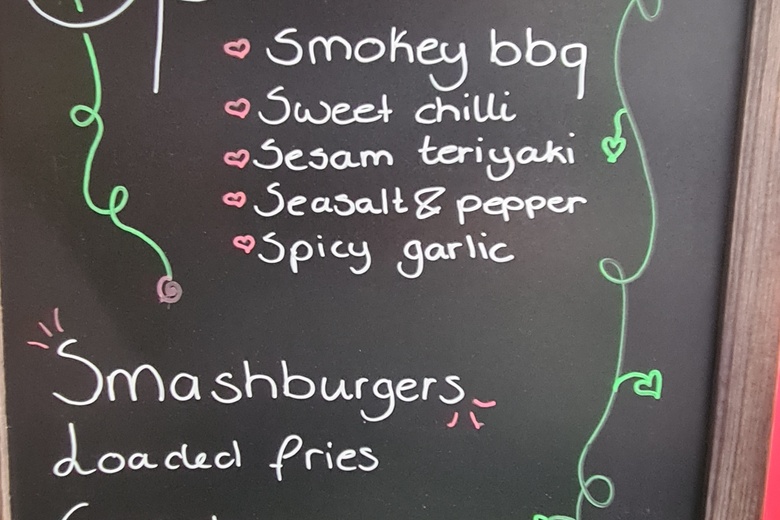 Smokey bbq
Sweet chilli
Sesam teriyaki
Seasalt & pepper
Spicy garlic
Smashburgers
Loaded fries